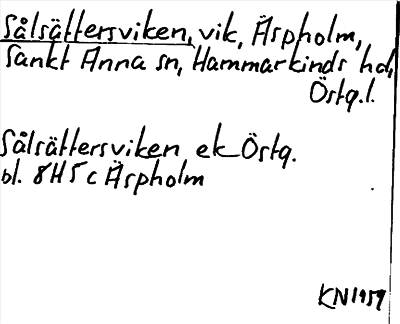 Sålsättersviken, vik, Äspholm,
Sankt Anna sn, Hammarkinds hd,
Östg.l.
Sålsättersviken ek Östg.
bl. 8H5c Äspholm
KN1959